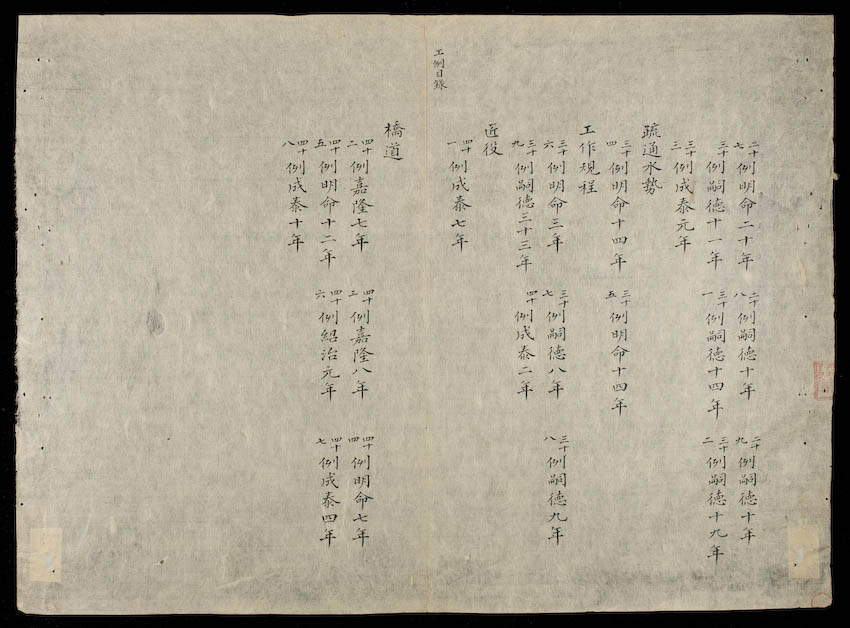 二十七例明命二十年 二十八例嗣徳十年 二十九例嗣徳十年
三十例嗣徳十一年 三十一例嗣徳十四年 三十二例嗣徳十九年
三十三例成泰元年
疏通水勢
三十四例明命十四年 三十五例明命十四年
工作規程
三十六例明命三年 三十七例嗣徳八年 三十八例嗣徳九年
三十九例嗣徳三十三年 四十例成泰二年
匠役
四十一例成泰七年
工例目錄
橋道
四十二例嘉隆七年 四十三例嘉隆八年 四十四例明命七年
四十五例明命十二年 四十六例紹治元年 四十七例成泰四年
四十八例成泰十年